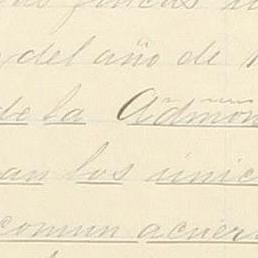 fincas
del año de
de la Admon
an los único
comun acuer